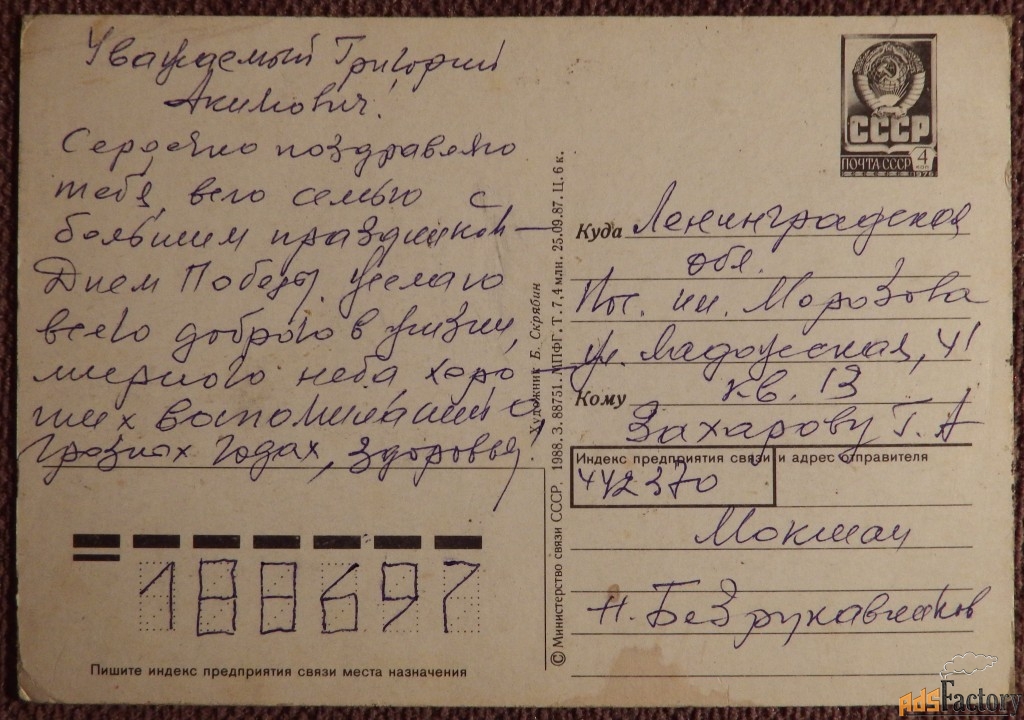 Уважаемый Григорий
Акимович!
Сердечно поздравляю
тебя, всю семью с
большим праздником —
Днем Победы. Желаю
всего доброго в жизни,
мирного неба, хоро
ших воспоминаний о
грозных годах, здоровья.
188697
Пишите индекс предприятия связи места назначения
© Министерство связи СССР. 1988. З. 88751. МПФГ. Т. 7,4 млн. 25.09.87. Ц. 6 к.
Художник Б. Скрябин
СССР
ПОЧТА СССР 4 коп
1976
Куда Ленинградская
обл.
Пос. им. Морозова
ул. Ладожская, 41
кв. 13
Кому
Захарову Г. А
Индекс предприятия связи и адрес отправителя
442370
Мокшан
Н. Безрукавников
AdsFactory